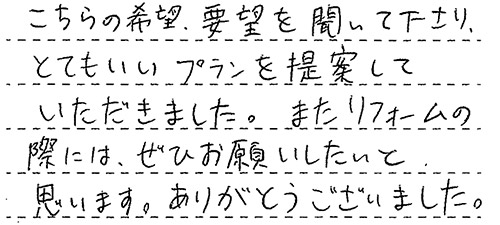 こちらの希望、要望を聞いて下さり、
とてもいいプランを提案して
いただきました。またリフォームの
際には、ぜひお願いしたいと
思います。ありがとうございました。